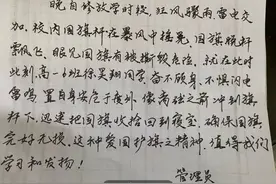 晚自修放学时段，狂风骤雨雷电交
加。校内国旗神在暴风中摇晃，国旗脱杆
飘飞，眼见国旗有被撕毁危险。就在此时
此刻，高一6班徐昊翔同学，奋不顾身，不惧闪电
雷鸣，置自身安危于度外，像离弦之箭冲到旗
杆下，迅速把国旗收拾回到寝室，确保国旗
完好无损。这种爱国护旗之精神，值得我们
学习和发扬！
管理员